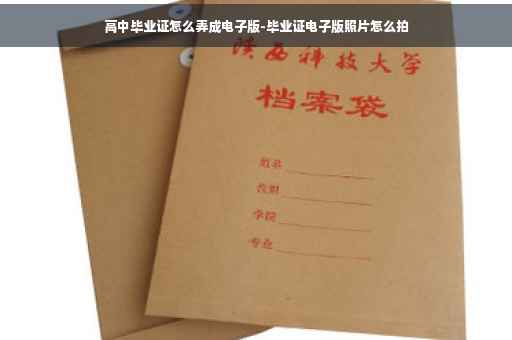 高中毕业证怎么弄成电子版-毕业证电子版照片怎么拍
陕西科技大学
档案袋
姓名
学院
专业